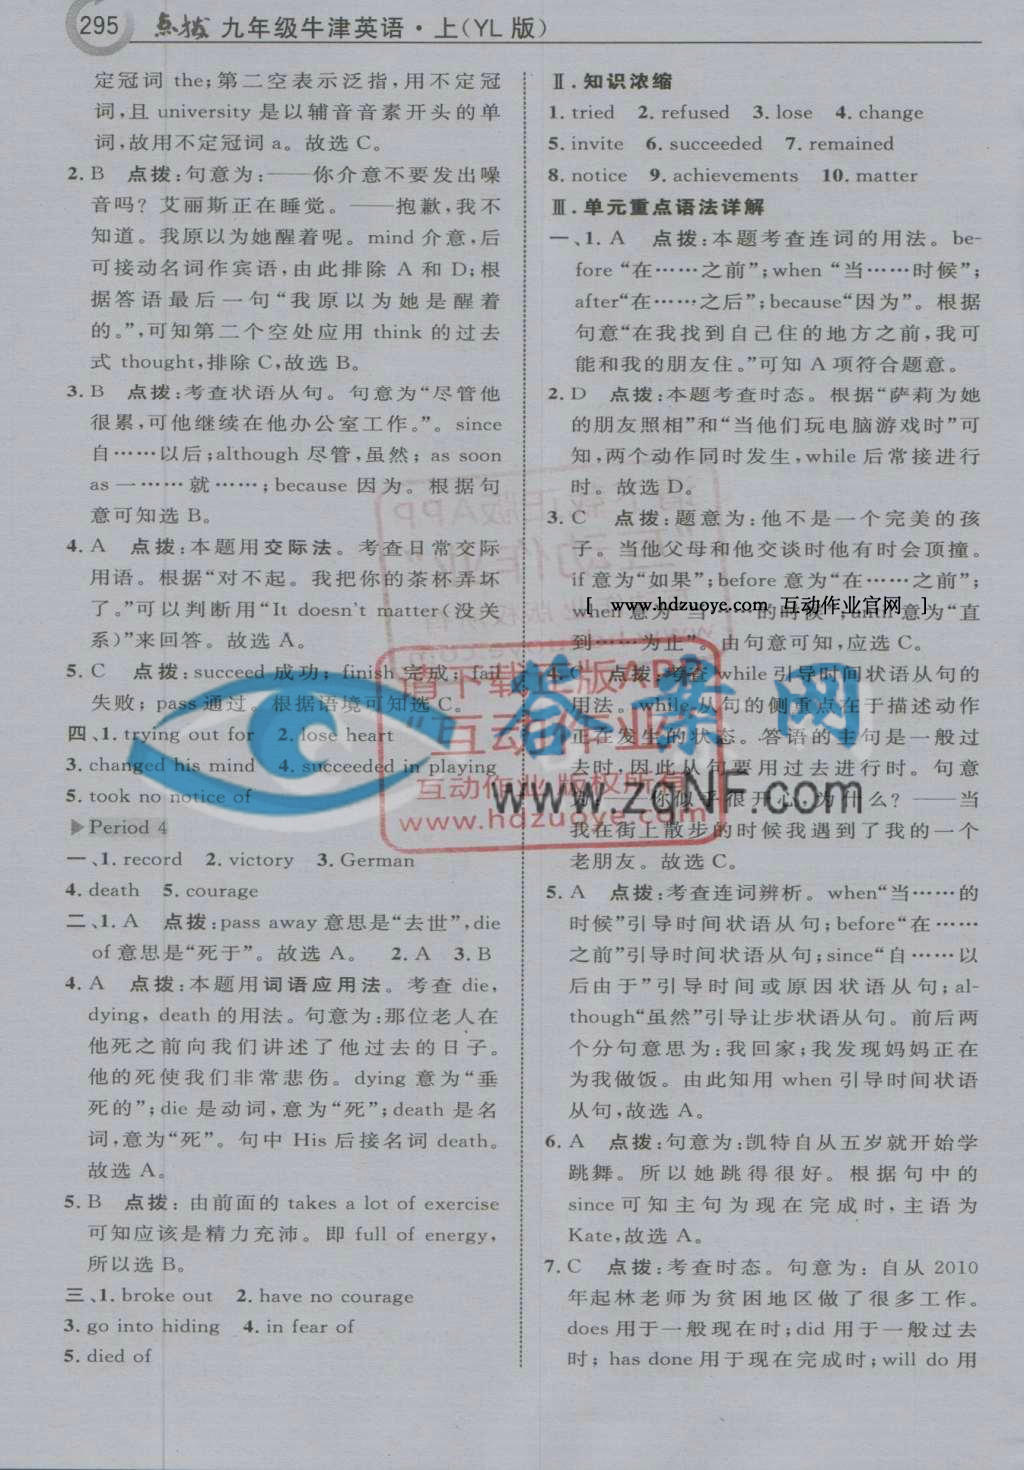 295 点拨 九年级牛津英语·上(YL版)
定冠词 the;第二空表示泛指,用不定冠
词,且 university 是以辅音音素开头的单
词,故用不定冠词 a。故选 C。
2. B 点拨:句意为:——你介意不要发出噪
音吗?艾丽斯正在睡觉。——抱歉,我不
知道。我原以为她醒着呢。mind 介意,后
可接动名词作宾语,由此排除 A 和 D;根
据答语最后一句“我原以为她是醒着
的。”,可知第二个空处应用 think 的过去
式 thought,排除 C,故选 B。
3. B 点拨:考查状语从句。句意为“尽管他
很累,可他继续在他办公室工作。”。since
自……以后;although 尽管,虽然;as soon
as 一……就……;because 因为。根据句
意可知选 B。
4. A 点拨:本题用交际法。考查日常交际
用语。根据“对不起。我把你的茶杯弄坏
了。”可以判断用“It doesn't matter(没关
系)”来回答。故选 A。
5. C 点拨:succeed 成功;finish 完成;fail
失败;pass 通过。根据语境可知选 C。
四、1. trying out for 2. lose heart
3. changed his mind 4. succeeded in playing
5. took no notice of
Period 4
一、1. record 2. victory 3. German
4. death 5. courage
二、1. A 点拨:pass away 意思是“去世”,die
of 意思是“死于”。故选 A。 2. A 3. B
4. A 点拨:本题用词语应用法。考查 die,
dying, death 的用法。句意为:那位老人在
他死之前向我们讲述了他过去的日子。
他的死使我们非常悲伤。dying 意为“垂
死的”;die 是动词,意为“死”;death 是名
词,意为“死”。句中 His 后接名词 death。
故选 A。
5. B 点拨:由前面的 takes a lot of exercise
可知应该是精力充沛。即 full of energy,
所以选 B。
三、1. broke out 2. have no courage
3. go into hiding 4. in fear of
5. died of
Ⅱ.知识浓缩
1. tried 2. refused 3. lose 4. change
5. invite 6. succeeded 7. remained
8. notice 9. achievements 10. matter
Ⅲ.单元重点语法详解
一、1. A 点拨:本题考查连词的用法。be-
fore “在……之前”;when “当……时候”;
after“在……之后”;because“因为”。根据
句意“在我找到自己住的地方之前,我可
能和我的朋友住。”可知 A 项符合题意。
2. D 点拨:本题考查时态。根据“萨莉为她
的朋友照相”和“当他们玩电脑游戏时”可
知,两个动作同时发生,while 后常接进行
时。故选 D。
3. C 点拨:题意为:他不是一个完美的孩
子。当他父母和他交谈时他有时会顶撞。
if 意为“如果”;before 意为“在……之前”;
when 意为“当……的时候”;until 意为“直
到……为止”。由句意可知,应选 C。
[ www.hdzuoye.com 互动作业官网 ]
4. C 点拨:考查 while 引导时间状语从句的
用法。while 从句的侧重点在于描述动作
正在发生的状态。答语的主句是一般过
去时,因此从句要用过去进行时。句意
为:——你似乎很开心,为什么?——当
我在街上散步的时候我遇到了我的一个
老朋友。故选 C。
5. A 点拨:考查连词辨析。when“当……的
时候”引导时间状语从句;before“在……
之前”引导时间状语从句;since“自……以
后由于”引导时间或原因状语从句;al-
though“虽然”引导让步状语从句。前后两
个分句意思为:我回家;我发现妈妈正在
为我做饭。由此知用 when 引导时间状语
从句,故选 A。
6. A 点拨:句意为:凯特自从五岁就开始学
跳舞。所以她跳得很好。根据句中的
since 可知主句为现在完成时,主语为
Kate,故选 A。
7. C 点拨:考查时态。句意为:自从 2010
年起林老师为贫困地区做了很多工作。
does 用于一般现在时;did 用于一般过去
时;has done 用于现在完成时;will do 用
请下载正版APP
“互动作业”
互动作业 版权所有
www.hdzuoye.com
答案网
www.zqNF.com